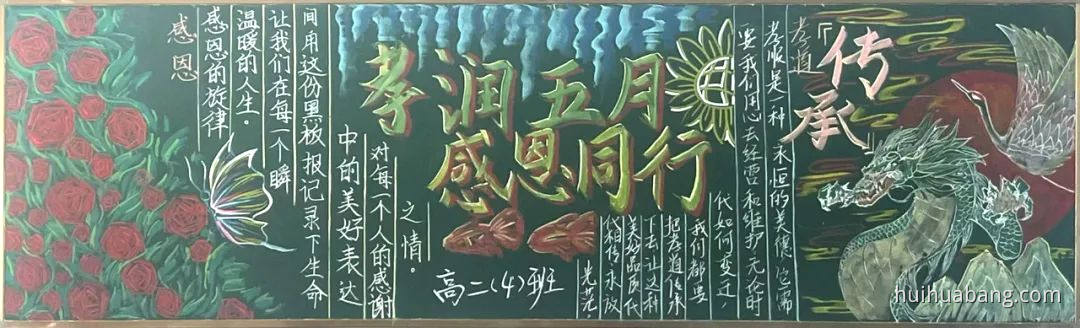 孝润五月
感恩同行
高二(4)班
「传承
孝道
孝顺是一种永恒的美德它需
要我们用心去经营和维护无论时
代如何变迁,
我们都要
把孝道传承
下去让这种
美好品质代
代相传永放
光芒。
感恩
感恩的旋律
温暖的人生。
让我们在每一个瞬
间用这份黑板报记录下生命
中的美好表达
对每一个人的感谢
之情。
huihuabang.com